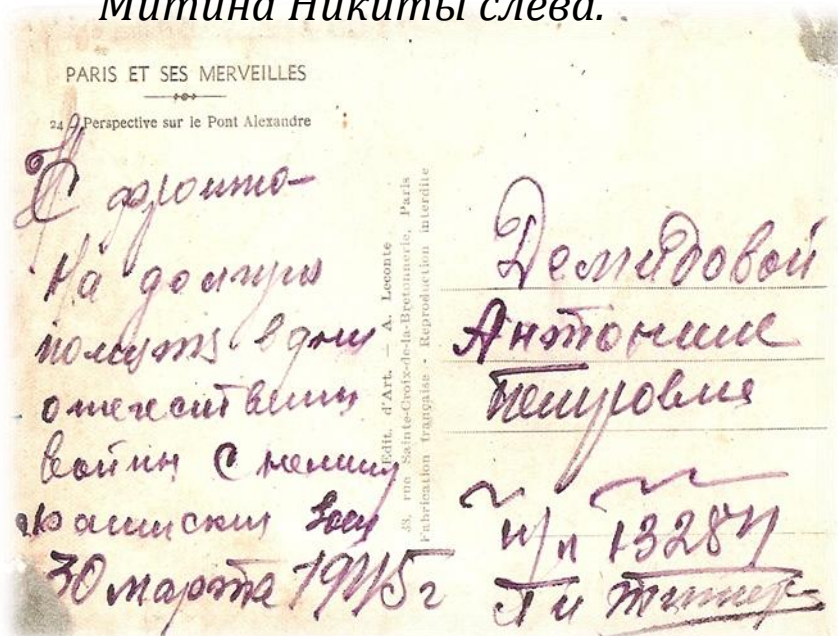 Митина Никиты слева.
PARIS ET SES MERVEILLES
24 - Perspective sur le Pont Alexandre
С фронта-
На долгую
память в дни
отечествени
войны с немец
фашиским
30 марта 1945 г
Edit. d'Art. — A. Leconte
33, rue Sainte-Croix-de-la-Bretonnerie, Paris
Fabrication française - Reproduction interdite
Демидовой
Антонине
Петровне
п/п 13284